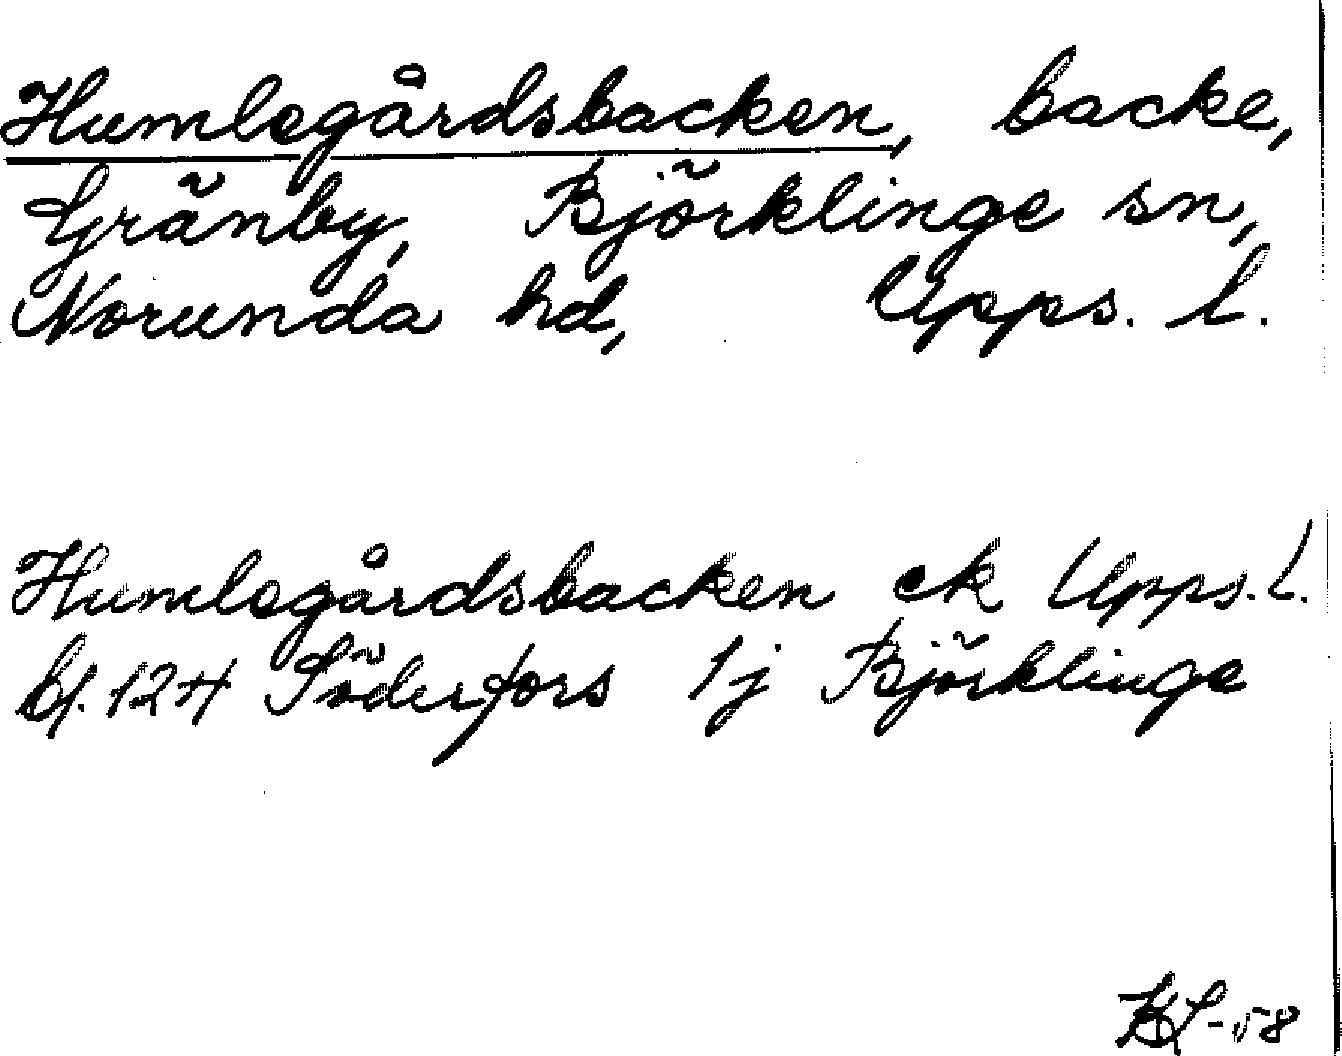 Humlegårdsbacken, backe,
Gränby, Björklinge sn,
Norunda hd, Upps. l.
Humlegårdsbacken ek Upps. l.
bl. 124 Söderfors 1j Björklinge
KL-58